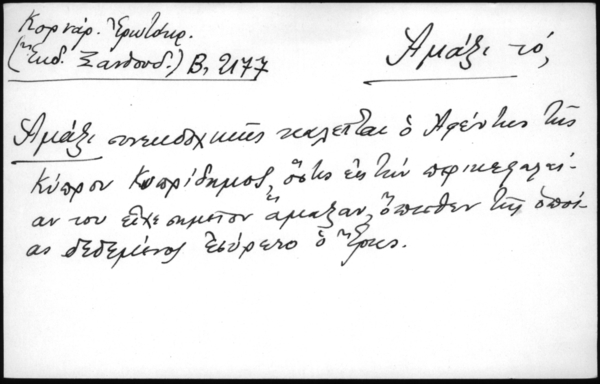 Κορνάρ. Ἐρωτόκρ.
(Ἔκδ. Ξανθουδ.) Β, 2177
Ἁμάξι τό,
Ἁμάξι συνεκδοχικῶς καλεῖται ὁ Ἀφέντης τῆς
Κύπρου Κυπρίδημος, ὅστις εἰς τὴν περικεφαλαί-
αν του εἶχε σημεῖον ἅμαξαν, ὄπισθεν τῆς ὁποί-
ας δεδεμένος ἐσύρετο ὁ Ἔρως.